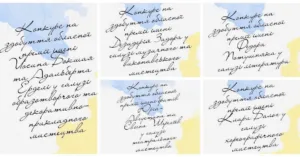 Конкурс на
здобуття обласної
премії імені
Йосипа Бокшая
та Адальберта
Ерделі у галузі
образотворчого та
декоративно
прикладного
мистецтва
Конкурс на
здобуття обласної
премії імені
Дезидерія Задора у
галузі музичного та
виконавського
мистецтва
Конкурс на
здобуття обласної
премії імені
Федора
Потушняка у
галузі літератури
Конкурс на
здобуття обласної
премії
та
Євгена
у
галузі
театрального
мистецтва
Конкурс на
здобуття обласної
премії імені
Клари Балог у
галузі
хореографічного
мистецтва